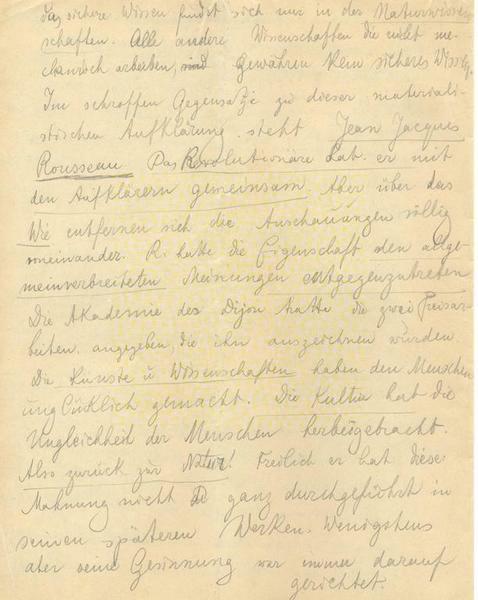 Das sichere Wissen findet sich nur in den Naturwissen
schaften. Alle andere Wissenschaften die nicht me-
chanisch arbeiten, sind gewähren kein sicheres Wissen.
Im schroffen Gegensatze zu dieser materiali-
stischen Aufklärung steht Jean Jacques
Rousseau. Das Revolutionäre hat er mit
den Aufklärern gemeinsam. Aber über das
Wie entfernen sich die Anschauungen völlig
voneinander. R. hatte die Eigenschaft den allge-
meinverbreiteten Meinungen entgegenzutreten
Die Akademie des Dijon hatte die zwei Preisar-
beiten angegeben, die ihn auszeichnen würden.
Die Künste u Wissenschaften haben den Menschen
unglücklich gemacht. Die Kultur hat die
Ungleichheit der Menschen herbeigebracht.
Also zurück zur Natur! Freilich er hat diese
Mahnung nicht ganz durchgeführt in
seinen späteren Werken. Wenigstens
aber seine Gesinnung war immer darauf
gerichtet.